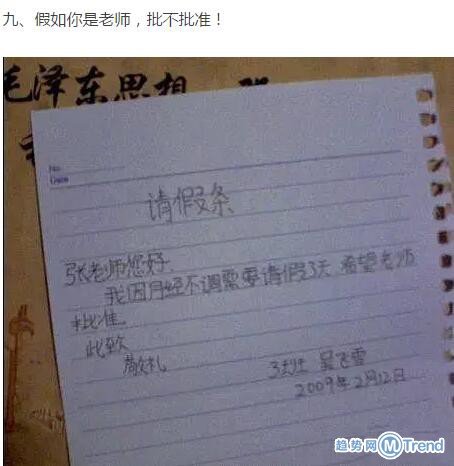 九、假如你是老师，批不批准！
毛泽东思想
No.
Date
请假条
张老师您好.
我因月经不调需要请假3天 希望老师
批准
此致
敬礼
3班 吴飞雪
2009年2月12日
趋势网 MTrend